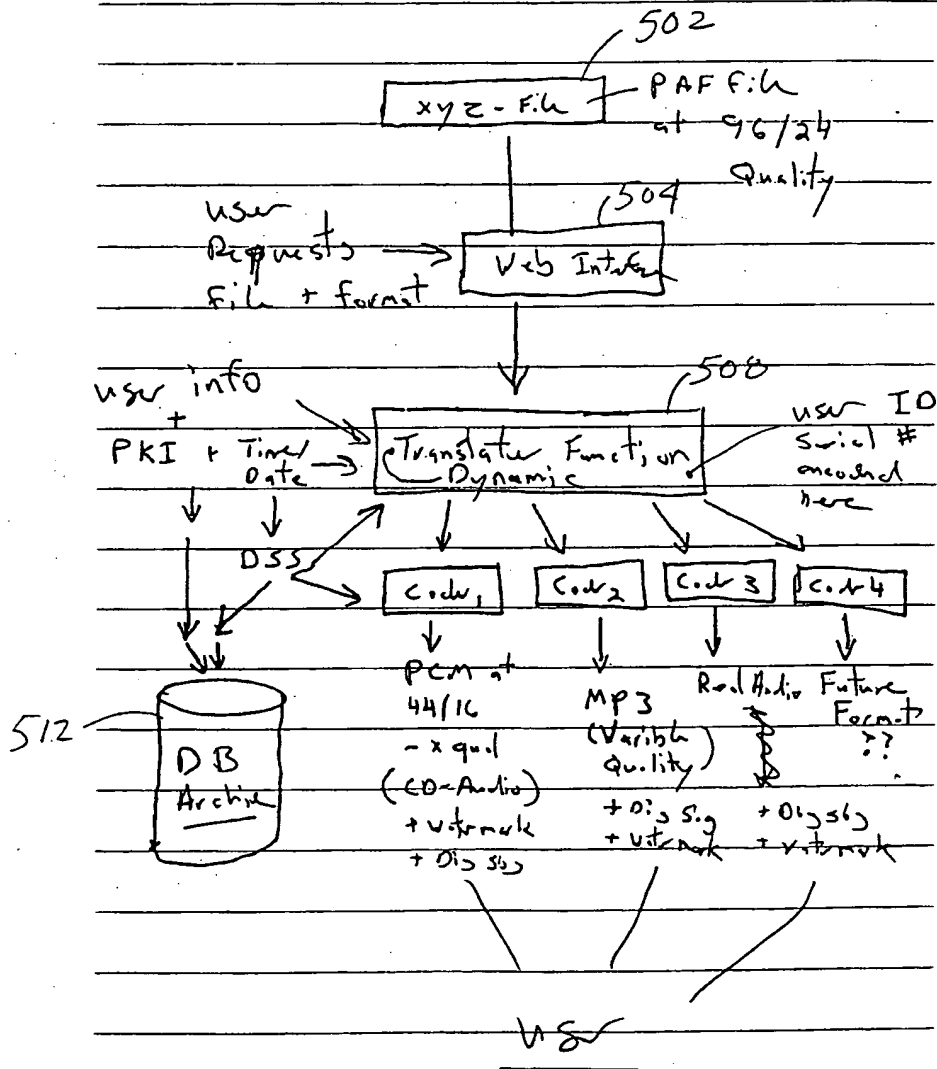 502
xyz - File
PAF File
at 96/24
Quality
504
user
Requests
File + format
Web Interface
508
user info
+
PKI + Time/
Date
Translator Function
Dynamic
user ID
Serial #
encoded
here
DSS
Codr 1
Codr 2
Codr 3
Codr 4
512
DB
Archive
PCM at
44/16
- x qual
(CD-Audio)
+ watermark
+ Dig sig
MP3
(Varible
Quality)
+ Dig Sig
+ watermark
Real Audio
Future
Format
??
+ Dig sig
+ watermark
user